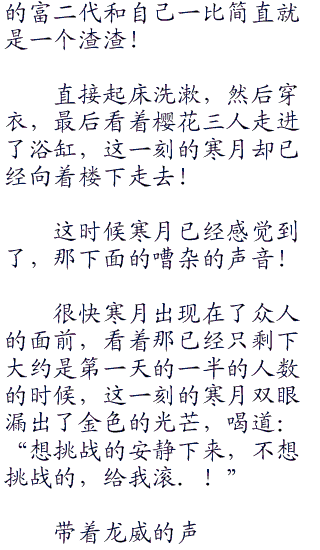 的富二代和自己一比简直就
是一个渣渣！
直接起床洗漱，然后穿
衣，最后看着樱花三人走进
了浴缸，这一刻的寒月却已
经向着楼下走去！
这时候寒月已经感觉到
了，那下面的嘈杂的声音！
很快寒月出现在了众人
的面前，看着那已经只剩下
大约是第一天的一半的人数
的时候，这一刻的寒月双眼
漏出了金色的光芒，喝道：
“想挑战的安静下来，不想
挑战的，给我滚．！”
带着龙威的声